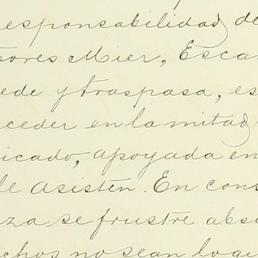 responsabilidad de
sores Mier, Esca
ede y traspasa, es
ceder en la mitad
icado, apoyada en
le asisten. En cons
za se frustre abso
chos no sean logi